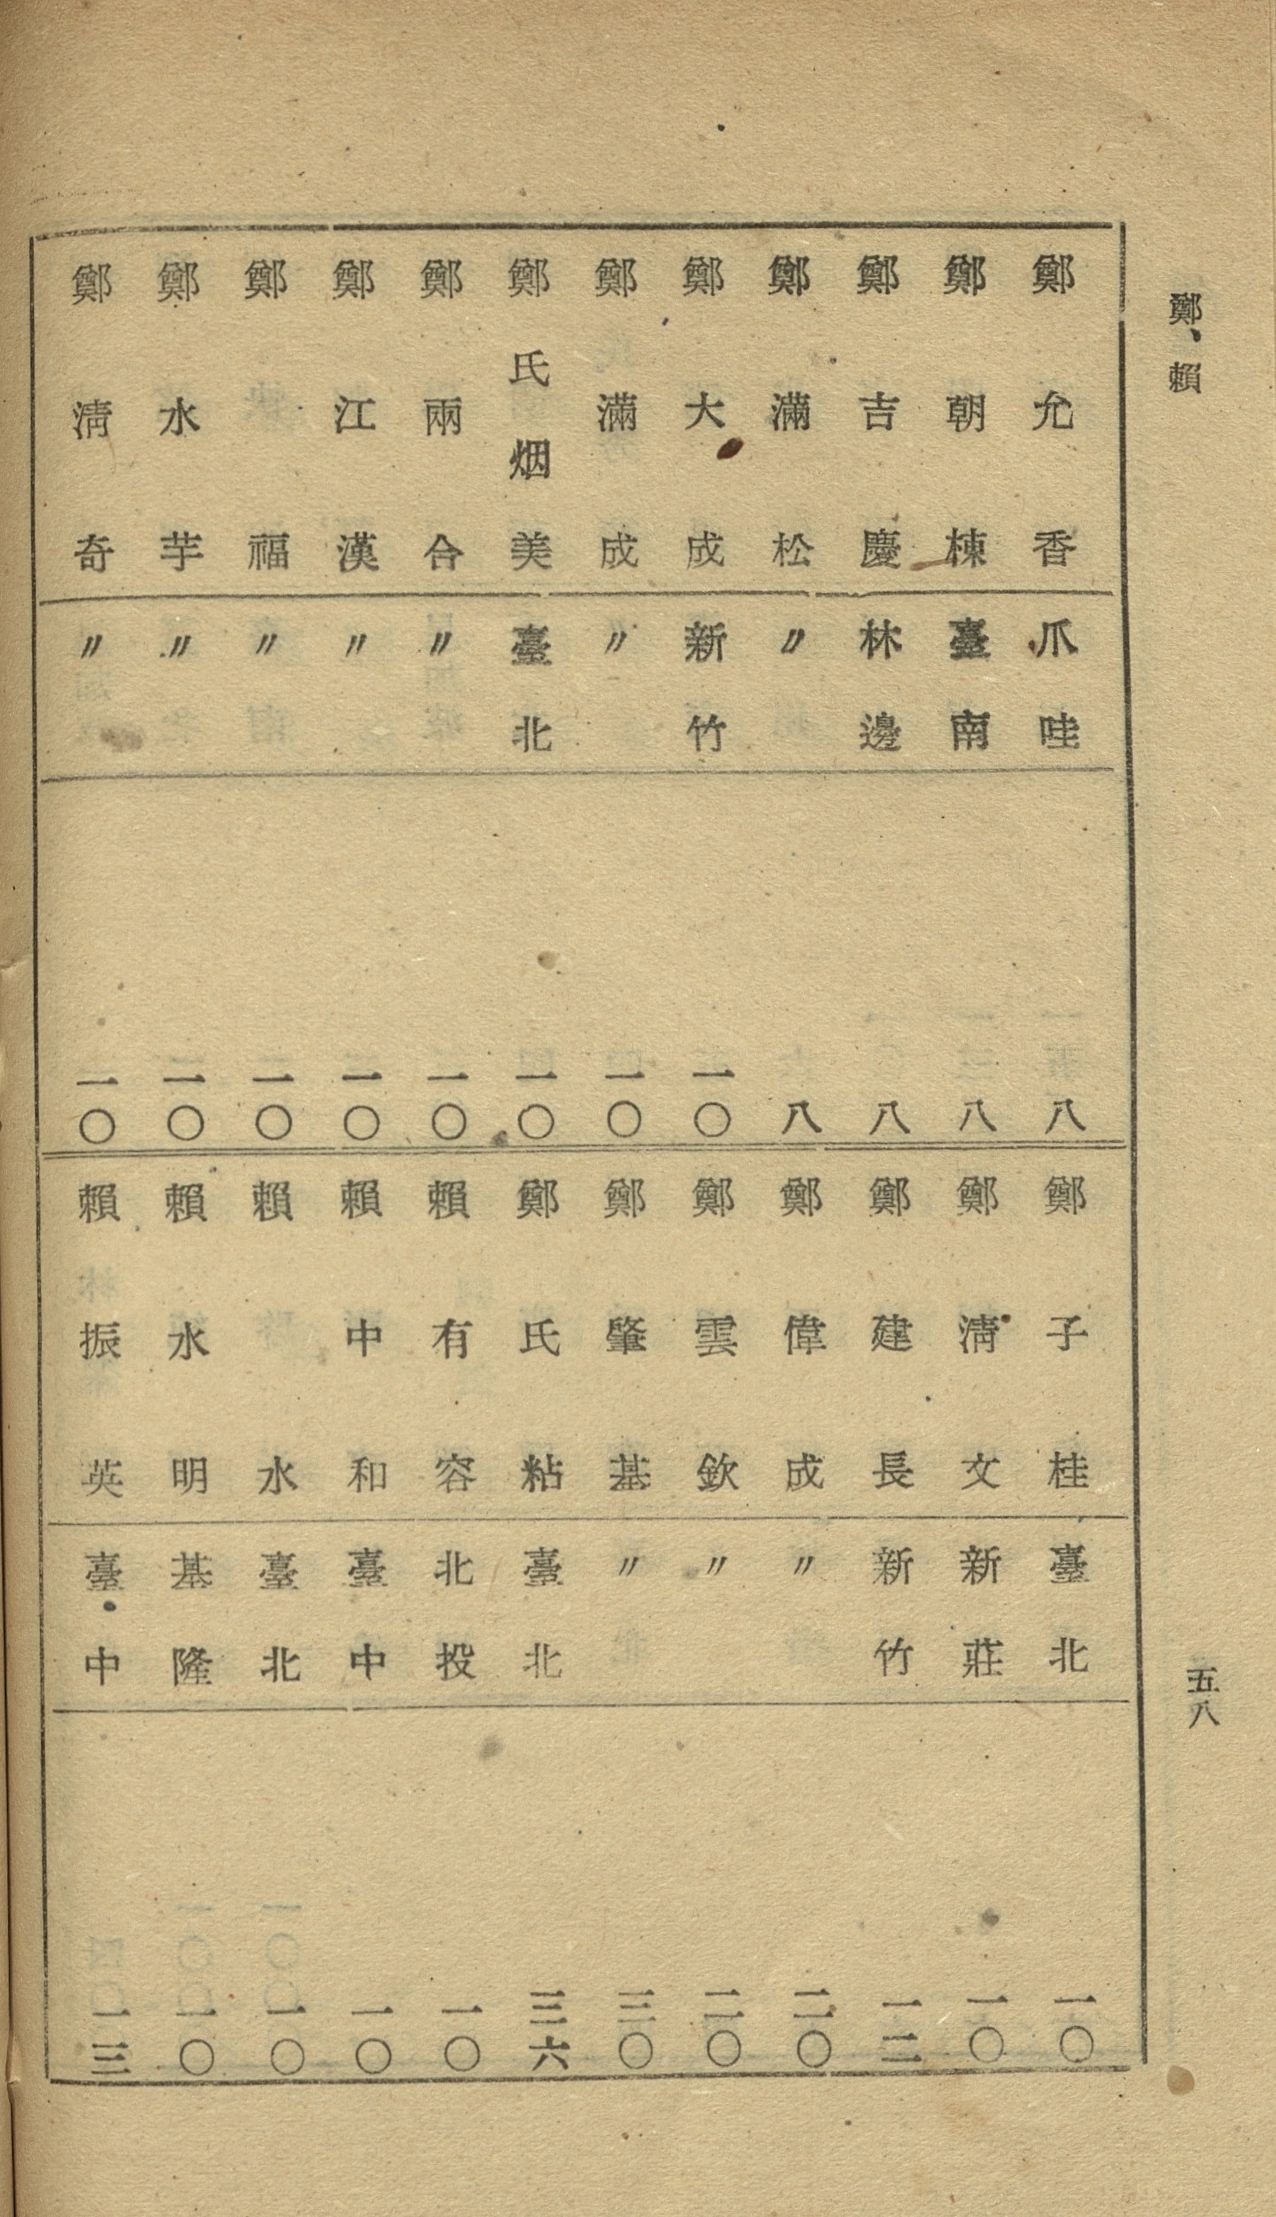 鄭、賴
五八
鄭允香 爪哇 八
鄭朝棟 臺南 八
鄭吉慶 林邊 八
鄭滿松 〃 八
鄭大成 新竹 一〇
鄭滿成 〃 一〇
鄭氏烟美 臺北 一〇
鄭兩合 〃 一〇
鄭江漢 〃 一〇
鄭福 〃 一〇
鄭水芋 〃 一〇
鄭淸奇 〃 一〇
鄭子桂 臺北 一〇
鄭淸文 新莊 一〇
鄭建長 新竹 一二
鄭偉成 〃 二〇
鄭雲欽 〃 二〇
鄭肇基 〃 三〇
鄭氏粘 臺北 三六
賴有容 北投 一〇
賴中和 臺中 一〇
賴水 臺北 一〇
賴水明 基隆 一〇
賴振英 臺中 一三